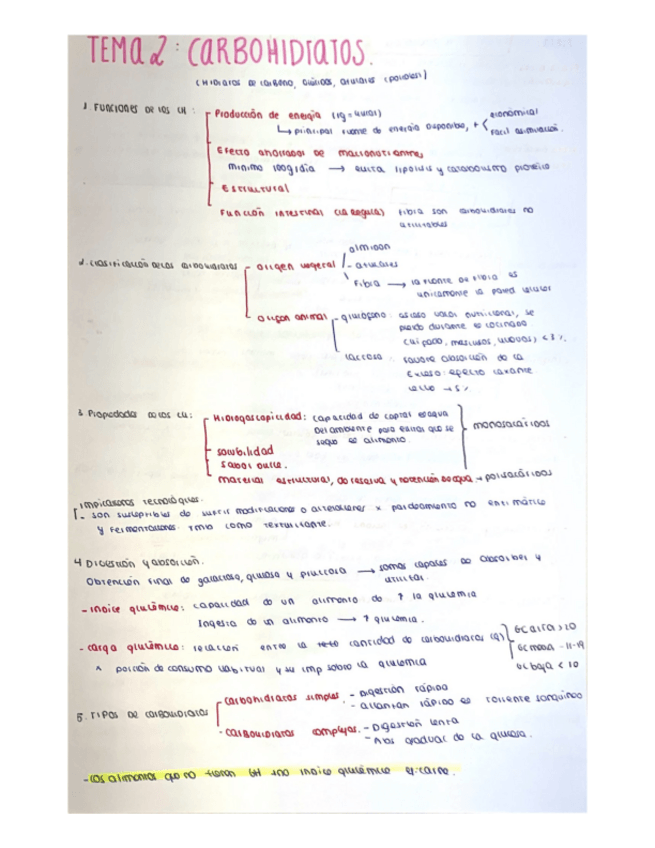 TEMA 2: CARBOHIDRATOS.
(HIDRATOS DE CARBONO, GLÚCIDOS, AZÚCARES (POPULAR))
1. FUNCIONES DE LOS CH:
Producción de energía (1g = 4kcal)
↳ principal fuente de energía disponible, + económica
fácil asimilación.
Efecto ahorrador de macronutrientes
mínimo 100g/día → evita lipólisis y catabolismo proteico
Estructural
Función intestinal (la regula) Fibra son carbohidratos no
utilizables
2. Clasificación de los carbohidratos
origen vegetal
almidón
- azúcares
Fibra → la fuente de fibra es
únicamente la pared celular
origen animal
- glucógeno: escaso valor nutricional, se
pierde durante el cocinado
(hígado, músculos, huevos) < 3%.
lactosa: favore absorción de Ca
Exceso: efecto laxante
leche → 5%
3. Propiedades de los CH:
Higroscopicidad: capacidad de captar el agua
Del ambiente para evitar que se
seque el alimento.
monosacáridos
solubilidad
Sabor dulce.
material estructural, de reserva y retención de agua → polisacáridos
Implicaciones tecnológicas.
- son susceptibles de sufrir modificaciones o alteraciones x pardeamiento no enzimático
y fermentaciones como texturizante.
4 Digestión y absorción.
Obtención final de galactosa, glucosa y fructosa → somos capaces de absorber y
utilizar.
- índice glucémico: capacidad de un alimento de ↑ la glucemia
Ingesta de un alimento → ↑ glucemia.
- carga glucémica: relación entre la cantidad de carbohidratos (g)
^ porción de consumo habitual y su imp sobre la glucemia
GC alta > 20
GC media - 11-19
GC baja < 10
5. TIPOS DE CARBOHIDRATOS
Carbohidratos simples - Digestión rápida
- alcanzan rápido el torrente sanguíneo
- Carbohidratos complejos. - Digestión lenta
- Abs gradual de la glucosa.
- los alimentos que no tienen CH → no índice glucémico ej: carne.